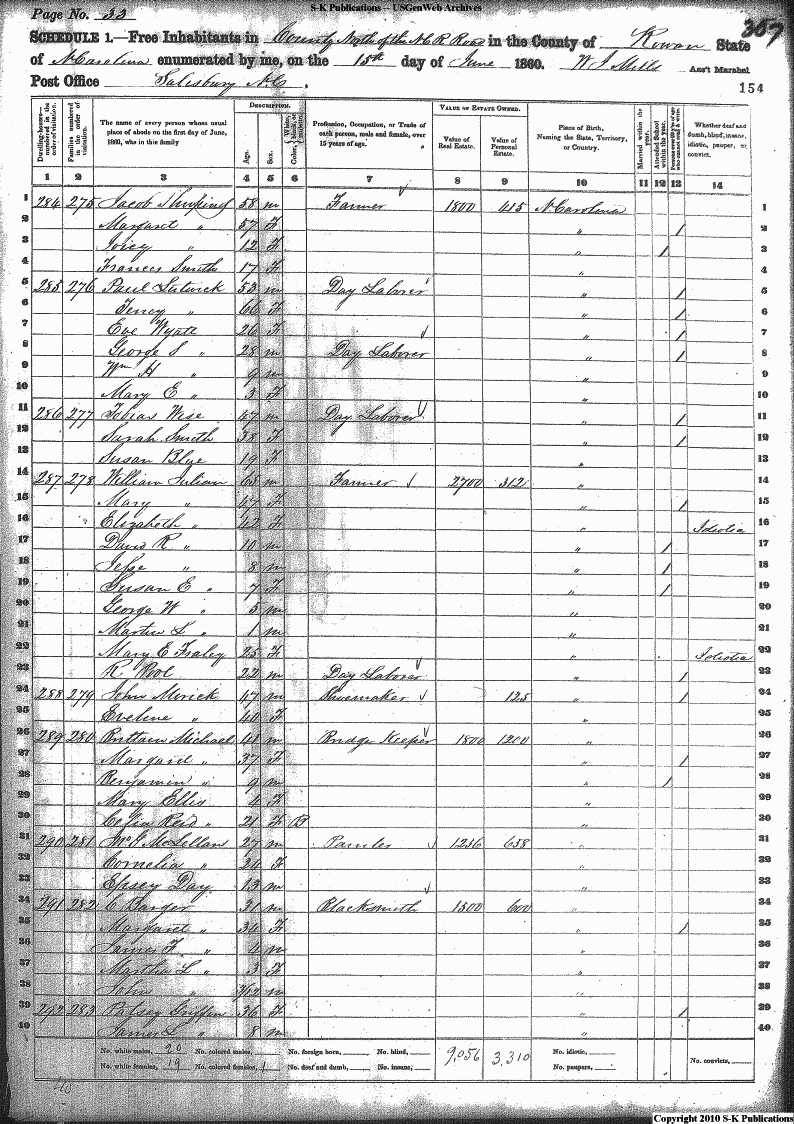 S-K Publications -- USGenWeb Archives
Page No. 33
367
SCHEDULE 1.—Free Inhabitants in County North of the N C R Road in the County of Rowan State
of N Carolina enumerated by me, on the 15th day of June 1860. W J Mills Ass't Marshal
Post Office Salisbury N C.
154
Dwelling-houses—numbered in the order of visitation.
Families numbered in the order of visitation.
The name of every person whose usual place of abode on the first day of June, 1860, was in this family
DESCRIPTION.
Age.
Sex.
Color, White, black, or mulatto.
Profession, Occupation, or Trade of each person, male and female, over 15 years of age.
VALUE OF ESTATE OWNED.
Value of Real Estate.
Value of Personal Estate.
Place of Birth, Naming the State, Territory, or Country.
Married within the year.
Attended School within the year.
Whether deaf and dumb, blind, insane, idiotic, pauper, or convict.
1 2 3 4 5 6 7 8 9 10 11 12 13 14
1 284 275 Jacob 58 m Farmer 1800 415 N Carolina 1
2 Margaret " 57 F " / 2
3 " 12 F " / 3
4 Frances Smith 17 F " 4
5 285 276 Paul 53 m Day Laborer " / 5
6 " 66 F " / 6
7 Eve Wyatt 26 F " / 7
8 George S " 28 m Day Laborer " / 8
9 Wm H " 9 m " 9
10 Mary E " 3 F " 10
11 286 277 Tobias Wise 47 m Day Laborer " / 11
12 Sarah Smith 38 F " / 12
13 Susan 19 F " 13
14 287 278 William Julian 68 m Farmer 2700 312 " 14
15 Mary " 67 F " / 15
16 Elizabeth " 42 F " Idiotic 16
17 David R " 10 m " / 17
18 Jesse " 8 m " / 18
19 Susan E " 7 F " / 19
20 George W " 5 m " 20
21 Martin L " 1 m " 21
22 Mary E Fraley 25 F " Idiotic 22
23 R Pool 22 m Day Laborer " / 23
24 288 279 John 47 m 125 " / 24
25 Eveline " 40 F " 25
26 289 280 Brittain Michael 41 m Bridge Keeper 1800 1200 " 26
27 Margaret " 37 F " / 27
28 Benjamin " 9 m " / 28
29 Mary Ellis 4 F " 29
30 Celia Reid " 21 F B " 30
31 290 281 McLellan 27 m Painter 1256 658 " 31
32 Cornelia " 24 F " 32
33 Day 13 m " 33
34 291 282 C Barger 31 m Blacksmith 1500 600 " 34
35 Margaret " 34 F " / 35
36 James F. " 4 m " 36
37 Martha L " 3 F " 37
38 John " m " 38
39 292 283 Patsey Griffin 36 F " / 39
40 James L " 8 m " 40
No. white males, 20 No. colored males, No. foreign born, No. blind, 9,056 3,310 No. idiotic,
No. white females, 19 No. colored females, 1 No. deaf and dumb, No. insane, No. paupers, No. convicts,
Copyright 2010 S-K Publications